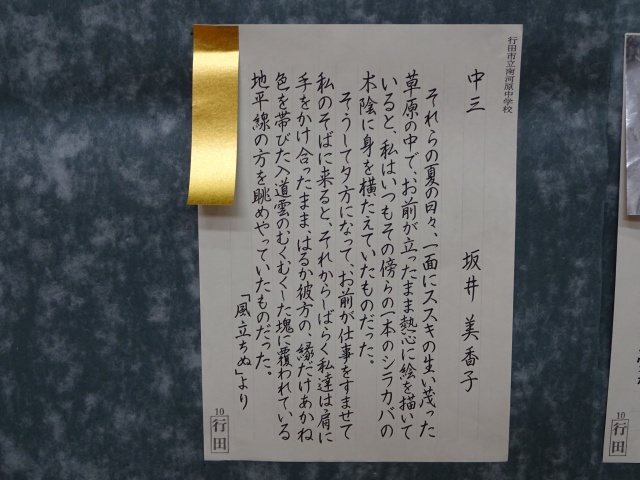 行田市立南河原中学校
中三　坂井美香子
それらの夏の日々、一面にススキの生い茂った
草原の中で、お前が立ったまま熱心に絵を描いて
いると、私はいつもその傍らの一本のシラカバの
木陰に身を横たえていたものだった。
そうして夕方になって、お前が仕事をすませて
私のそばに来ると、それからしばらく私達は肩に
手をかけ合ったまま、はるか彼方の、縁だけあかね
色を帯びた入道雲のむくむくした塊に覆われている
地平線の方を眺めやっていたものだった。
「風立ちぬ」より
10
行田
10
行田